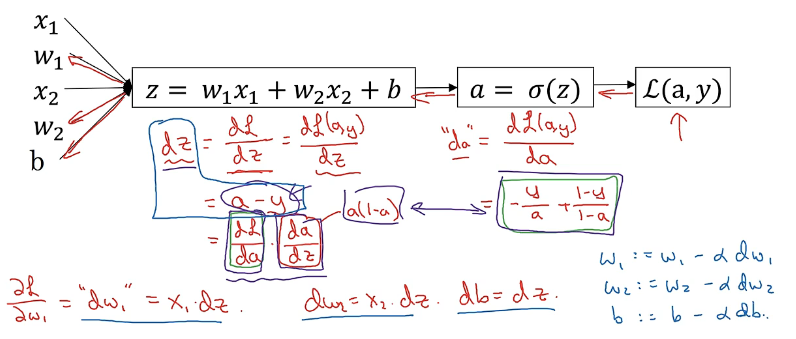 x₁
w₁
x₂
w₂
b
z = w₁x₁ + w₂x₂ + b
a = σ(z)
ℒ(a, y)
dz = dℒ/dz = dℒ(a,y)/dz
= a - y
= dℒ/da · da/dz
a(1-a)
"da" = dℒ(a,y)/da
= -y/a + (1-y)/(1-a)
∂ℒ/∂w₁ = "dw₁" = x₁·dz.
dw₂ = x₂·dz.
db = dz.
w₁ := w₁ - α dw₁
w₂ := w₂ - α dw₂
b := b - α db.